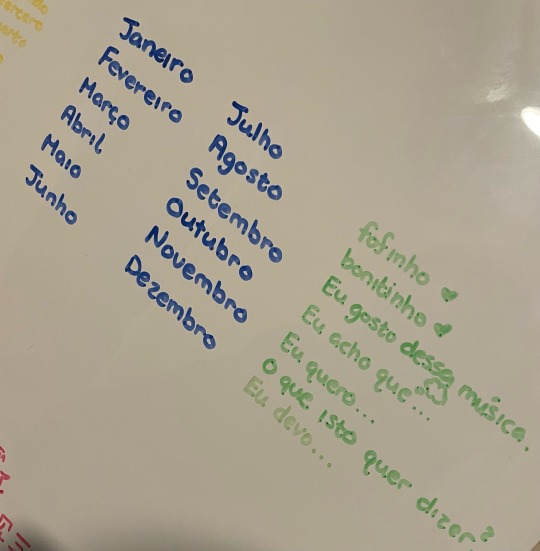 terceiro
Janeiro
Fevereiro
Março
Abril
Maio
Junho
Julho
Agosto
Setembro
Outubro
Novembro
Dezembro
fofinho ♥
bonitinho ♥
Eu gosto dessa música.
Eu acho que...
Eu quero...
O que isto quer dizer?
Eu devo...